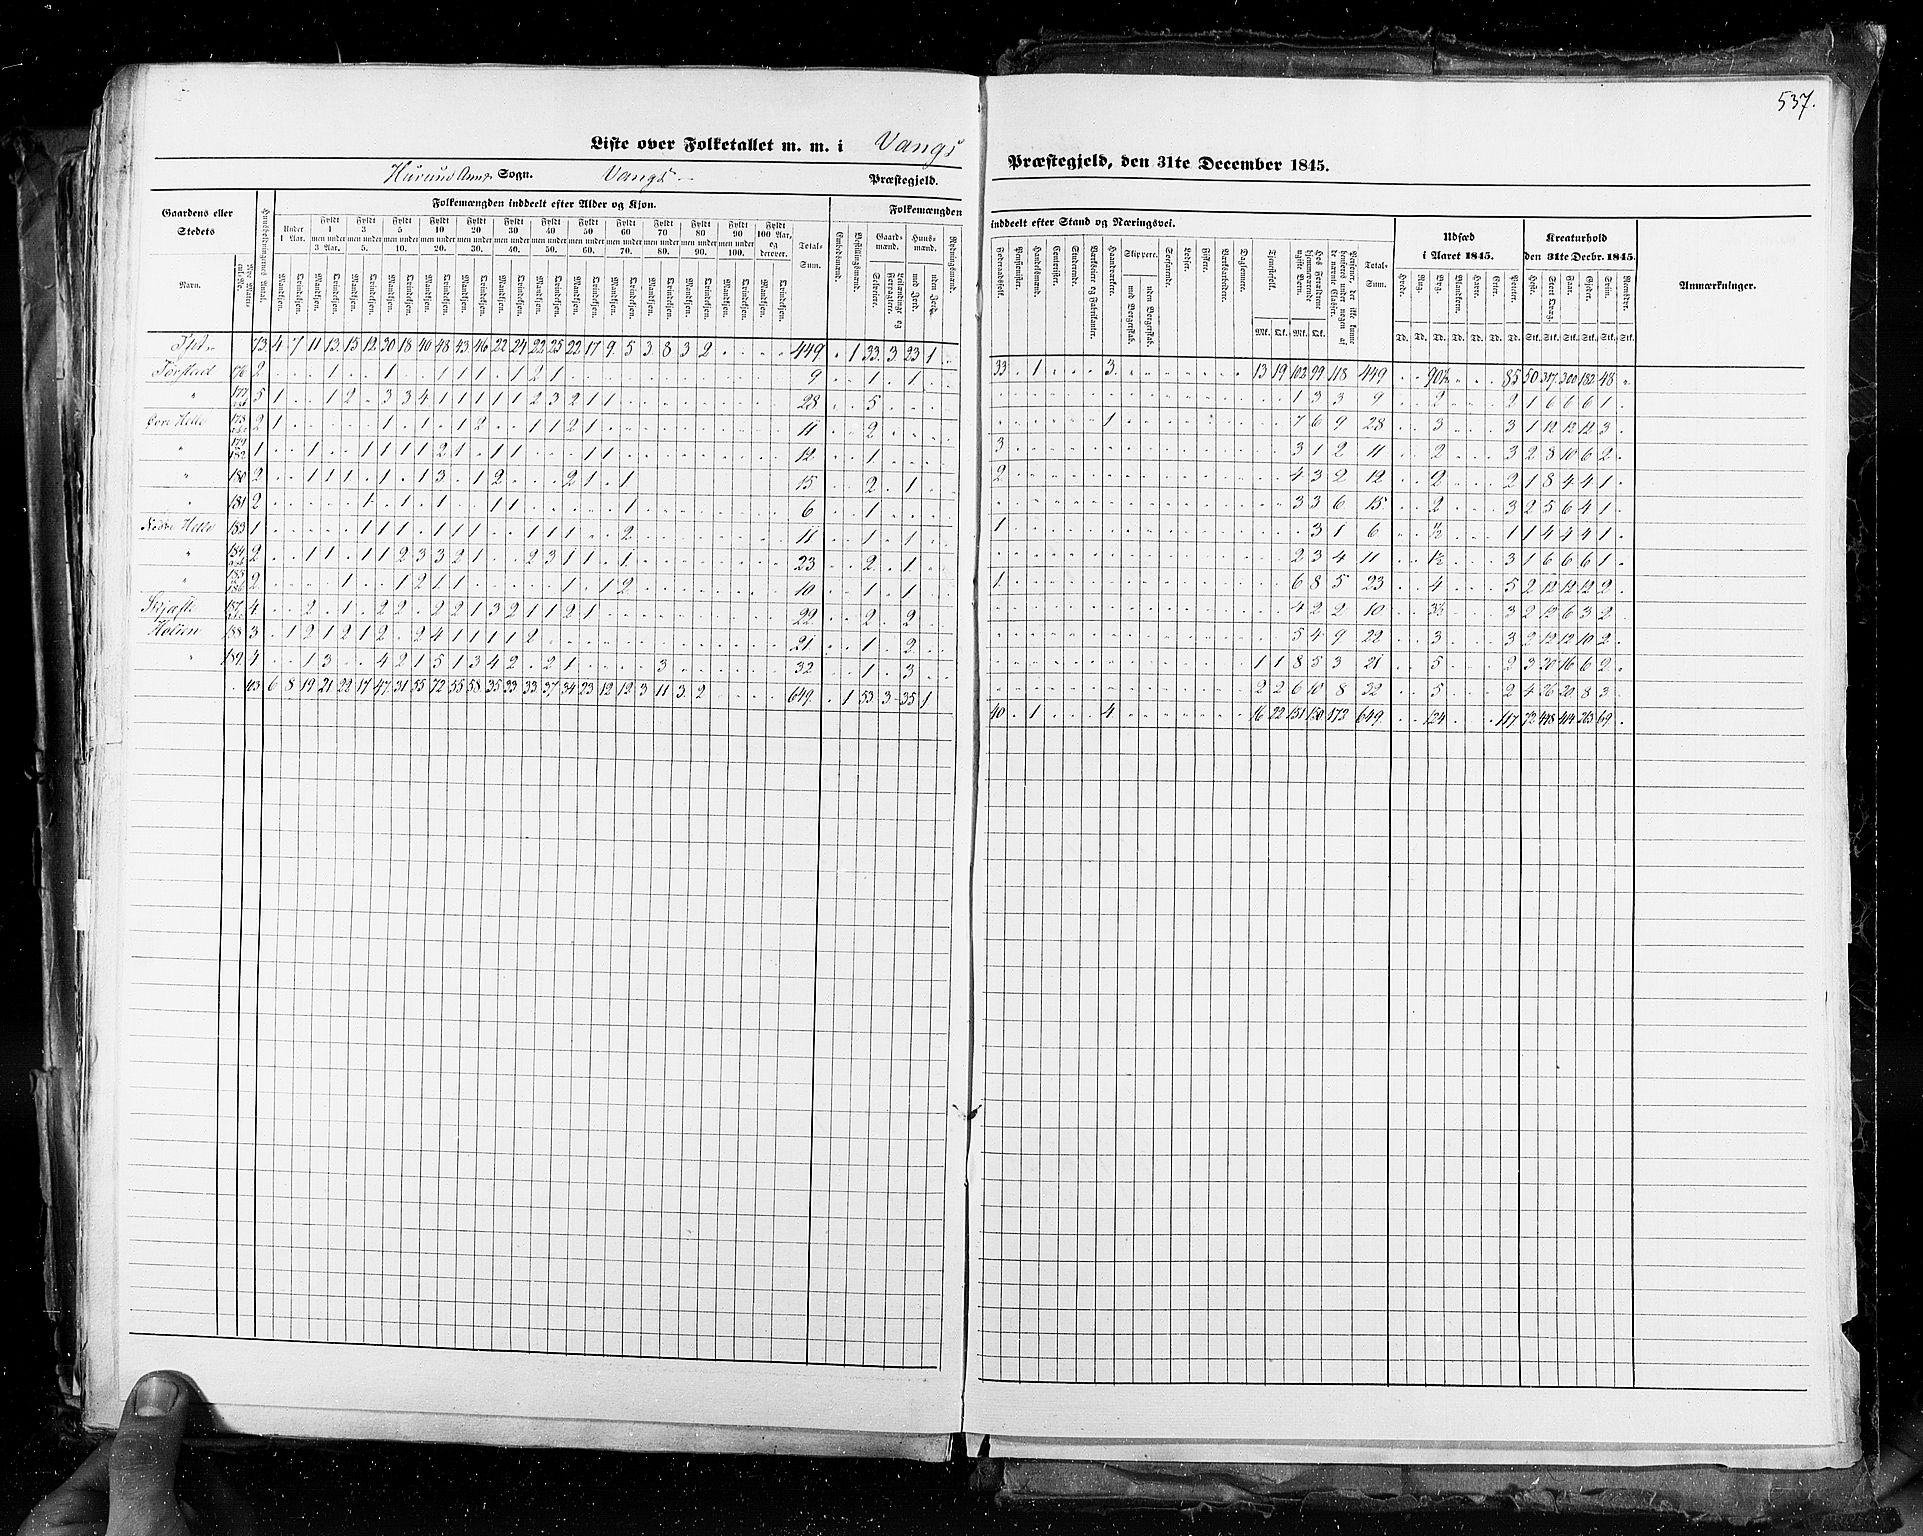 537.
Liste over Folketallet m. m. i Vangs
Præstegjeld, den 31te December 1845.
Hurum Annex Sogn. Vangs Præstegjeld.
Gaardens eller Stedets
Navn.
Huusholdningernes Antal.
Folkemængden inddeelt efter Alder og Kjøn.
Under 1 Aar.
Fyldt 1 men under 3 Aar.
Fyldt 3 men under 5.
Fyldt 5 men under 10.
Fyldt 10 men under 20.
Fyldt 20 men under 30.
Fyldt 30 men under 40.
Fyldt 40 men under 50.
Fyldt 50 men under 60.
Fyldt 60 men under 70.
Fyldt 70 men under 80.
Fyldt 80 men under 90.
Fyldt 90 men under 100.
Fyldt 100 Aar, og derover.
Mandkjøn. Qvindekjøn.
Total-Sum.
Folkemængden
Embedsmænd.
Bestillingsmænd.
Gaardmænd.
Selveiere.
Leilændinge og Forpagtere.
Huusmænd.
med Jord.
uden Jord.
Rydningsmænd.
inddeelt efter Stand og Næringsvei.
Føderaadsfolk.
Pensionister.
Handelsmænd.
Contorister.
Studerende.
Værkseiere og Fabrikanter.
Haandværkere.
Skippere.
med Borgerskab.
uden Borgerskab.
Søefarende.
Lodser.
Fiskere.
Værksarbeidere.
Daglønnere.
Tjenestefolk.
Mk. Qk.
Hos Forældrene hjemmeværende ugifte Børn.
Mk. Qk.
Personer, der ikke kunne henføres under nogen af de nævnte Classer.
Total-Sum.
Udsæd i Aaret 1845.
Hvede. Rug. Byg. Blandkorn. Havre. Erter. Poteter.
Td. Td. Td. Td. Td. Td. Td.
Kreaturhold den 31te Decbr. 1845.
Heste. Stort Qvæg. Faar. Gjeder. Sviin. Rensdyr.
Stk. Stk. Stk. Stk. Stk. Stk.
Anmærkninger.
73 4 7 11 13 15 12 30 18 40 48 43 46 22 24 22 25 22 17 9 5 3 8 3 2 449 1 33 3 23 1
33 1 3 13 19 102 99 118 449 90½ 85 50 317 300 182 48
176 2 1 1 1 1 1 1 2 1 9 1 1
1 3 3 9 2 2 1 6 6 6 1
177 5 1 1 2 3 3 4 1 1 1 1 1 2 3 2 1 1 28 5
1 7 6 9 28 3 3 1 12 12 12 3
Øvre Helle 178 2 1 1 1 1 2 1 1 2 1 11 2
3 3 1 2 11 2 3 2 8 10 6 2
179 182 1 1 1 1 1 1 2 1 1 1 1 1 12 1
2 4 3 2 12 2 2 1 8 4 4 1
180 2 1 1 1 1 1 3 1 2 2 1 1 15 2 1
3 3 6 15 2 3 2 5 6 4 1
181 2 1 1 1 1 1 1 6 1
1 3 1 6 ½ 1 1 4 4 4 1
Nedre Helle 183 1 1 1 1 1 1 1 1 1 1 2 11 1 1
2 3 4 11 1½ 3 1 6 6 6 1
184 2 1 1 1 1 2 3 3 2 1 2 3 1 1 1 23 2 1
1 6 8 5 23 4 5 2 12 12 12 2
185 186 2 1 1 2 1 1 1 1 2 10 1 1
4 2 2 10 3½ 3 2 12 6 3 2
187 4 2 1 2 2 2 2 1 3 2 1 1 2 1 22 2 2
5 4 9 22 3 3 2 12 12 10 2
188 3 1 2 1 2 1 2 2 4 1 1 1 1 2 21 1 2
1 1 8 5 3 21 5 2 3 20 16 6 2
189 4 1 3 4 2 1 5 1 3 4 2 2 1 3 32 1 3
2 2 6 10 8 32 5 2 4 26 20 8 3
6 8 19 21 22 17 47 31 55 72 55 58 35 33 33 37 34 23 12 12 3 11 3 2 649 1 53 3 35 1
40 1 4 16 22 151 150 173 649 124 117 72 448 414 263 69